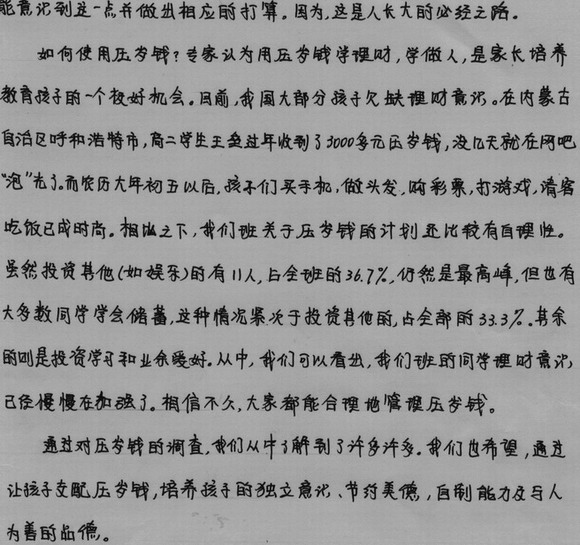 能意识到这一点并做出相应的打算。因为,这是人长大的必经之路。
如何使用压岁钱?专家认为用压岁钱学理财,学做人,是家长培养
教育孩子的一个较好机会。目前,我国大部分孩子欠缺理财意识。在内蒙古
自治区呼和浩特市,高二学生王奎过年收到了3000多元压岁钱,没几天就在网吧
“泡”光了。而农历大年初五以后,孩子们买手机,做头发,购彩票,打游戏,请客
吃饭已成时尚。相比之下,我们班关于压岁钱的计划还比较有自理性。
虽然投资其他(如娱乐)的有11人,占全班的36.7%,仍然是最高峰,但也有
大多数同学学会储蓄,这种情况紧次于投资其他的,占全部的33.3%。其余
的则是投资学习和业余爱好。从中,我们可以看出,我们班的同学理财意识,
已经慢慢在加强了。相信不久,大家都能合理地管理压岁钱。
通过对压岁钱的调查,我们从中了解到了许多许多。我们也希望,通过
让孩子支配压岁钱,培养孩子的独立意识、节约美德,自制能力及与人
为善的品德。